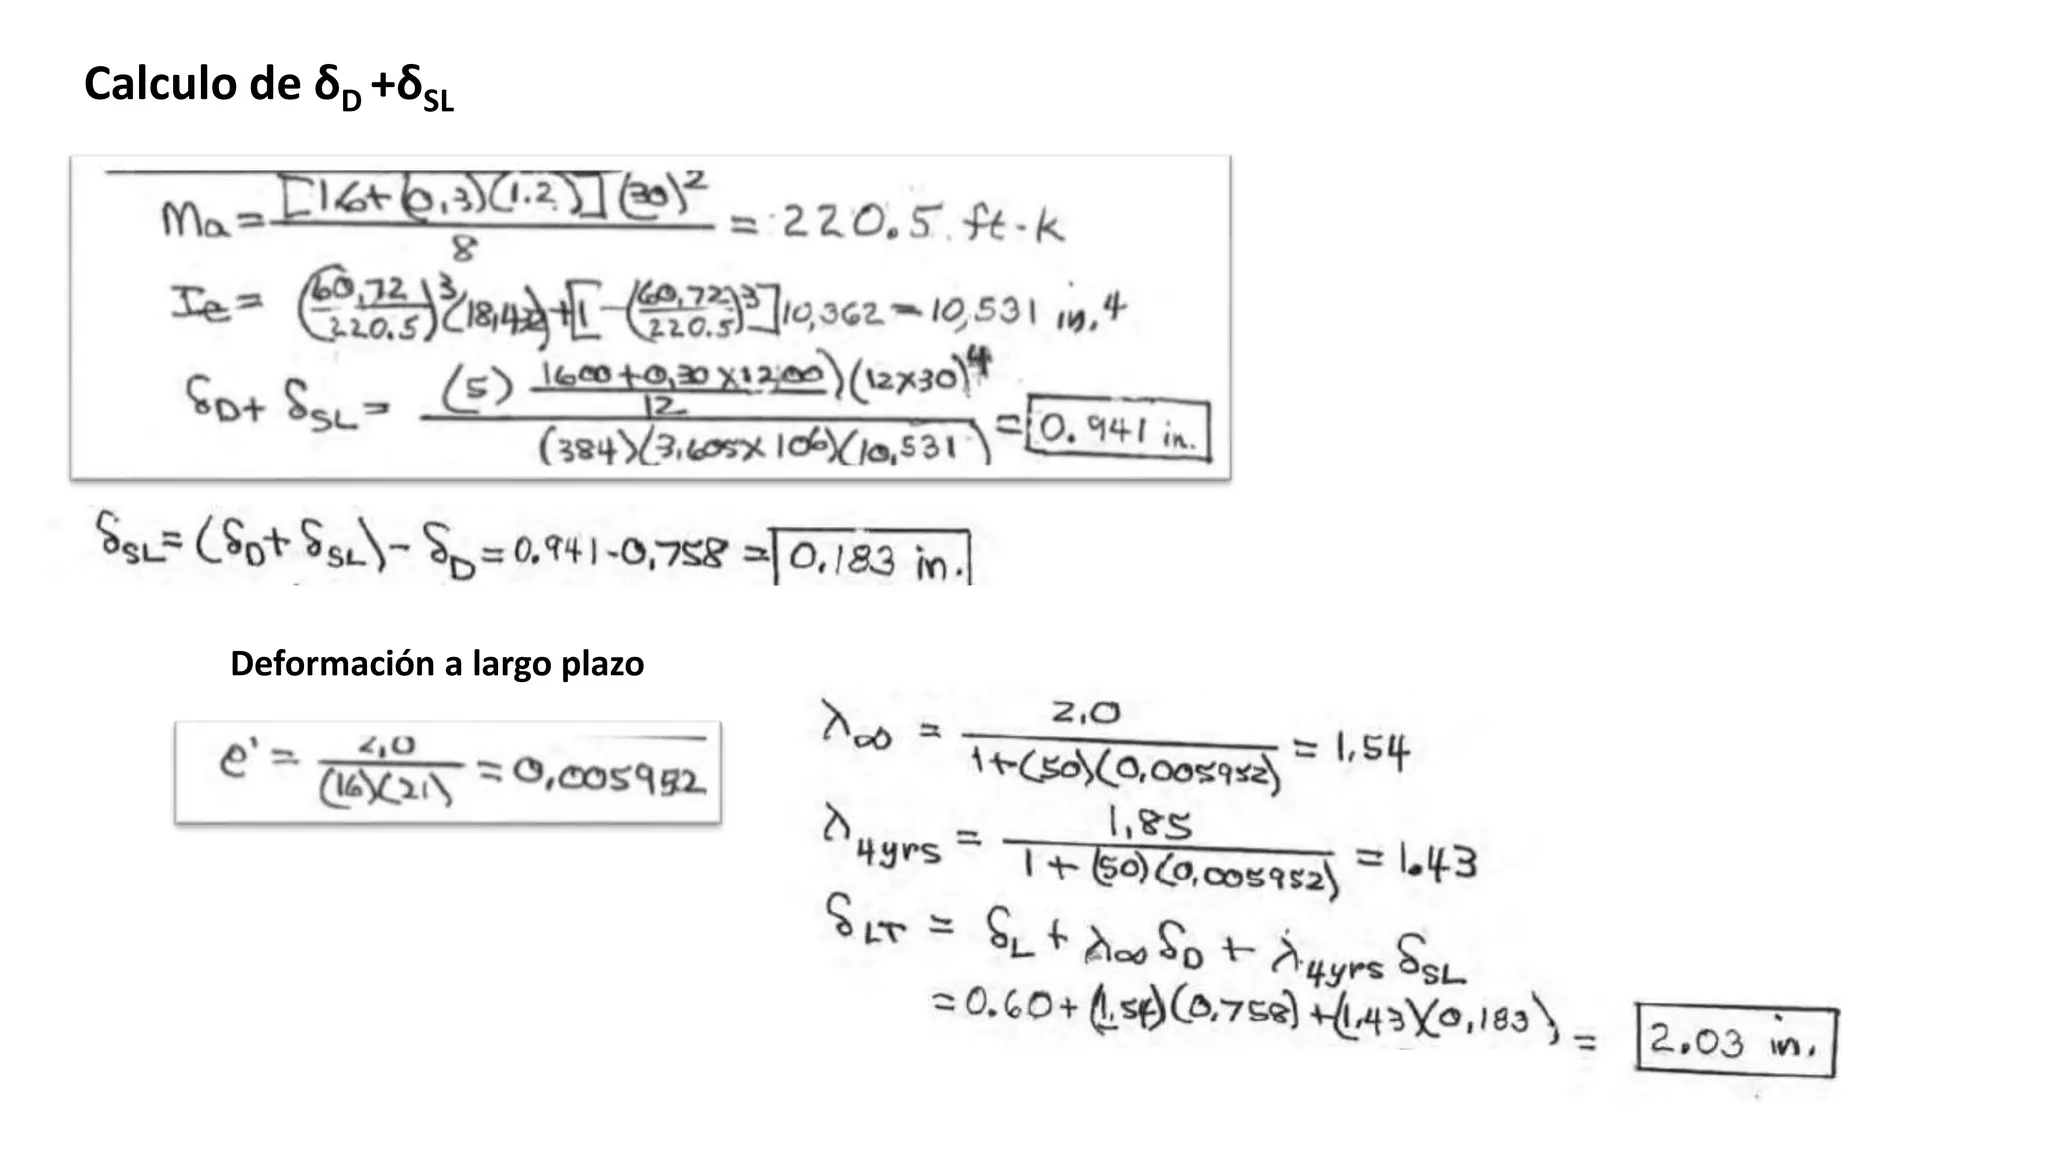 Calculo de δD +δSL
Ma = [1.6+(0.3)(1.2)](30)² / 8 = 220.5 ft-k
Ie = (60.72/220.5)³(18,432)+[1-(60.72/220.5)³]10,362 = 10,531 in.4
δD+ δSL = (5)(1600+0.30x1200/12)(12x30)4 / (384)(3.605x106)(10,531) = 0.941 in.
δSL = (δD+ δSL) - δD = 0.941-0.758 = 0.183 in.
Deformación a largo plazo
e' = 2.0/(16)(21) = 0.005952
λ∞ = 2.0/1+(50)(0.005952) = 1.54
λ4yrs = 1.85/1+(50)(0.005952) = 1.43
δLT = δL + λ∞ δD + λ4yrs δSL
= 0.60+(1.54)(0.758)+(1.43)(0.183) = 2.03 in.